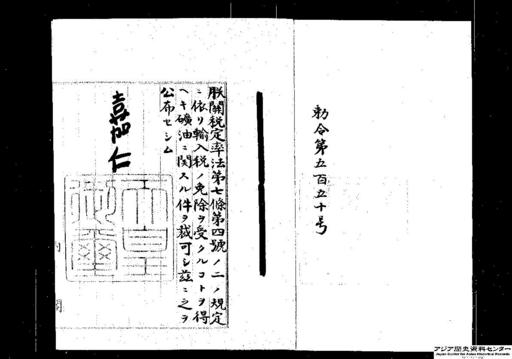 勅令第五百五十号
朕關税定率法第七條第四號ノ二ノ規定
ニ依リ輸入税ノ免除ヲ受クルコトヲ得
ヘキ礦油ニ関スル件ヲ裁可シ茲ニ之ヲ
公布セシム
嘉仁
天皇
御璽
アジア歴史資料センター
Japan Center for Asian Historical Records